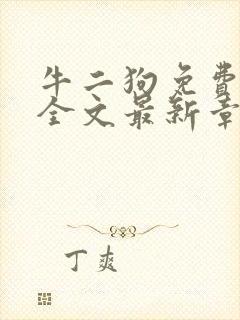 牛二狗免费
全文最新章
丁爽